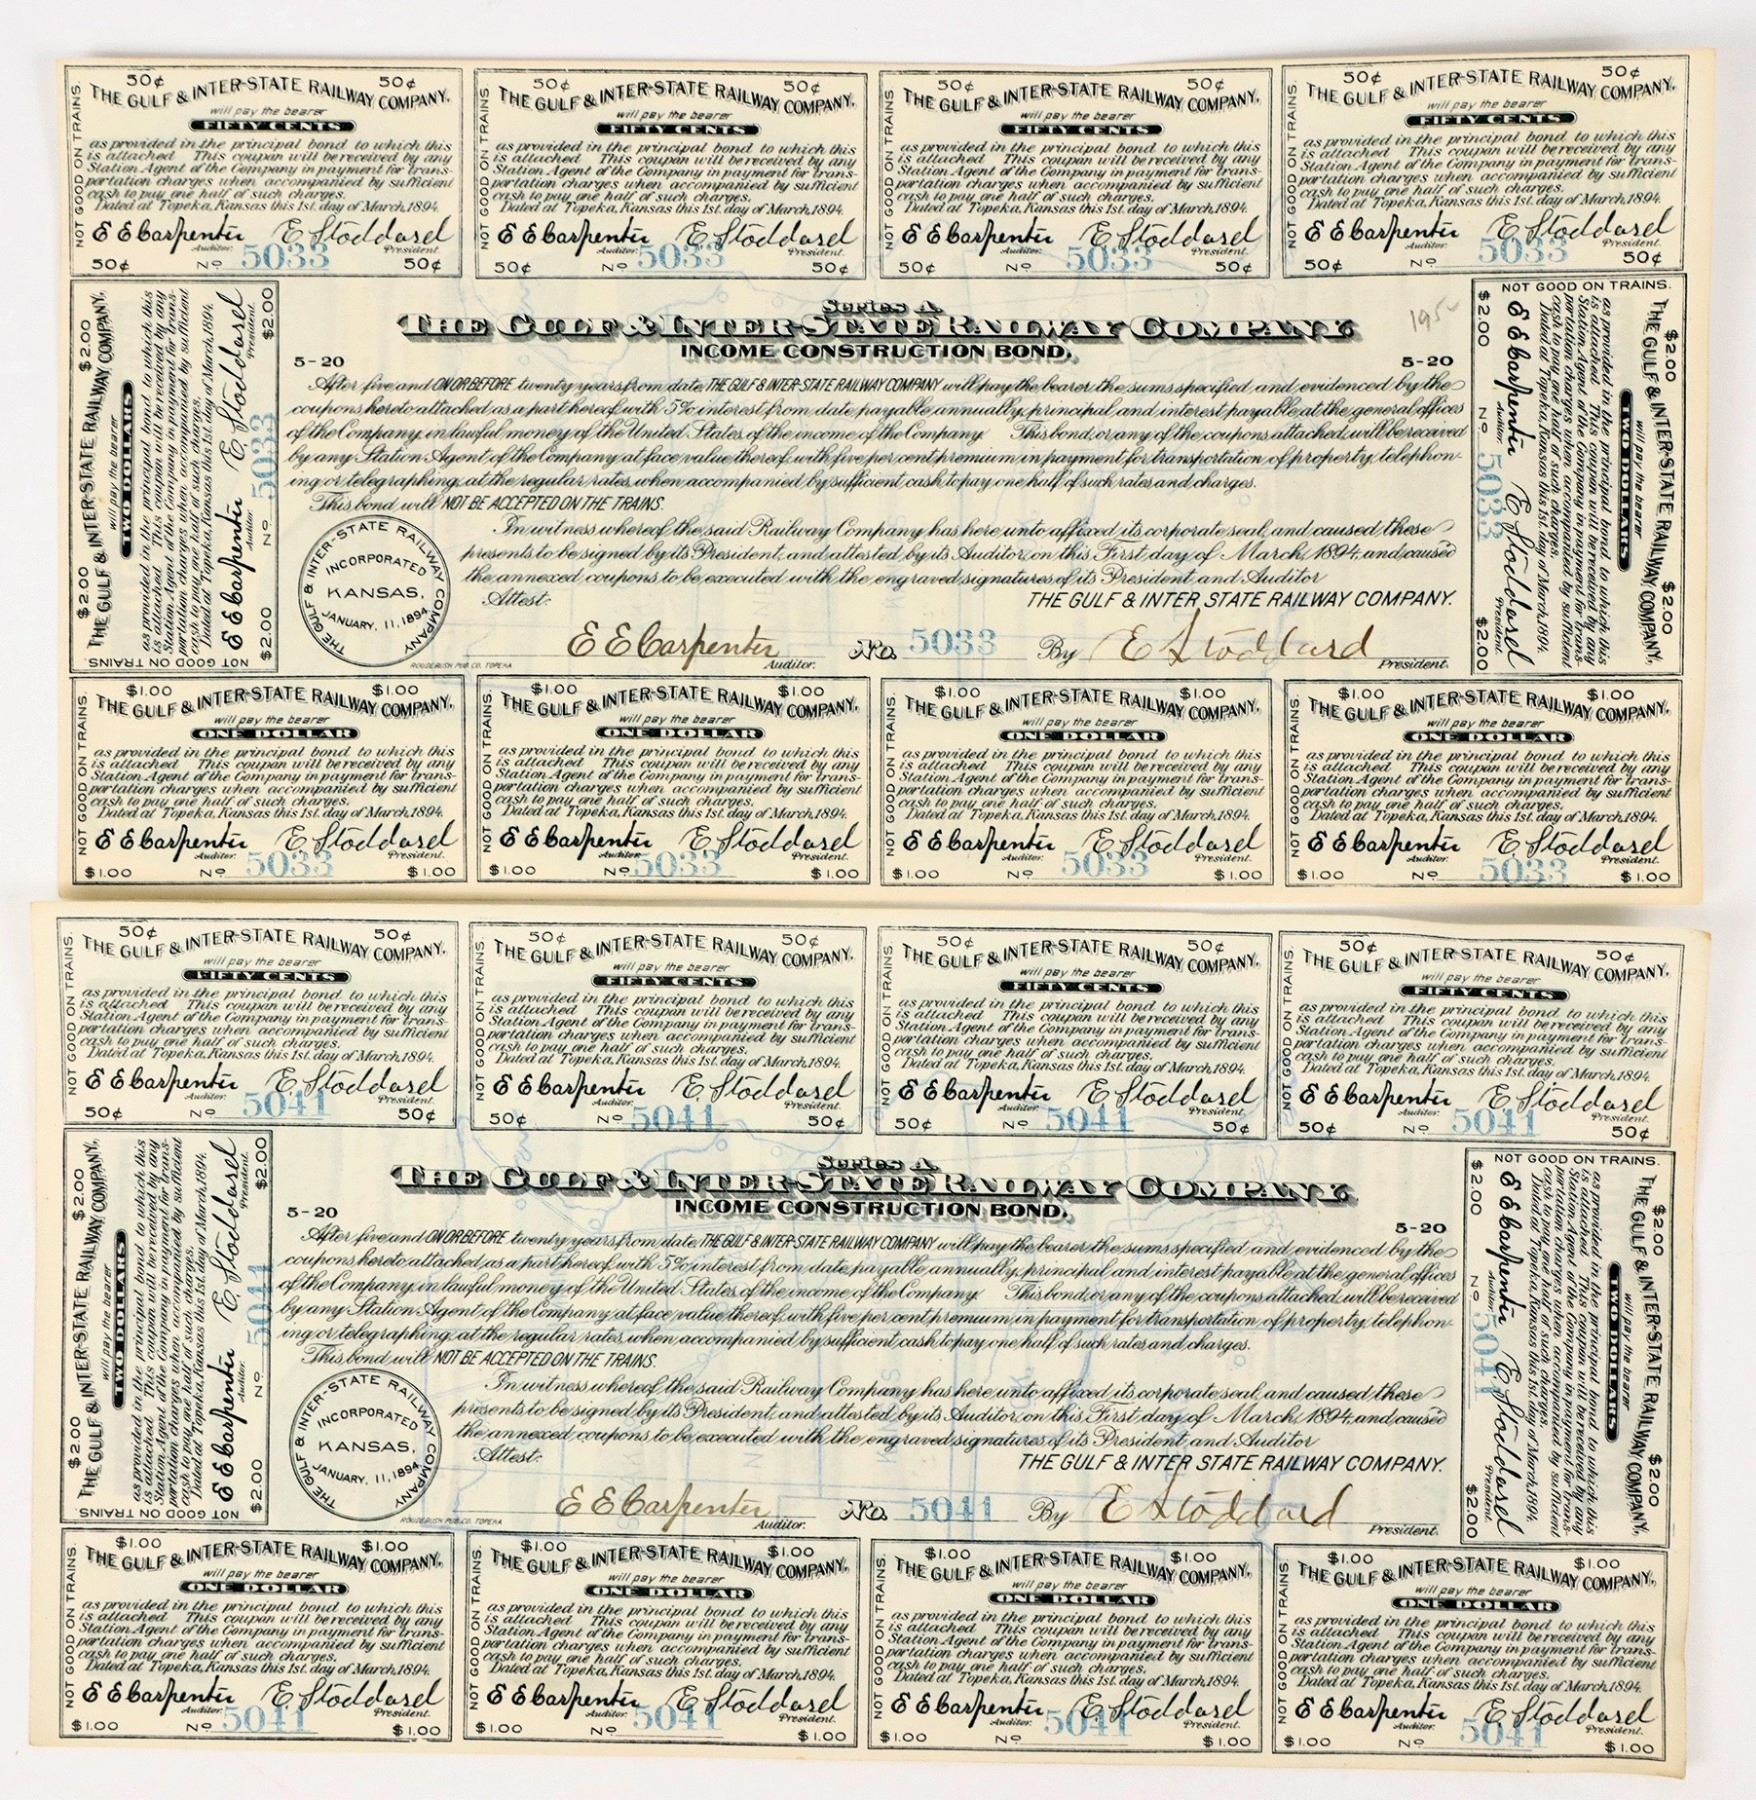 NOT GOOD ON TRAINS.
50¢ 50¢
THE GULF & INTER-STATE RAILWAY COMPANY.
will pay the bearer
FIFTY CENTS
as provided in the principal bond to which this
is attached This coupon will be received by any
Station Agent of the Company in payment for trans-
portation charges when accompanied by sufficient
cash to pay one half of such charges.
Dated at Topeka, Kansas this 1st. day of March, 1894.
E E Carpenter E. Stoddard
Auditor. President.
50¢ No 5033 50¢
NOT GOOD ON TRAINS.
50¢ 50¢
THE GULF & INTER-STATE RAILWAY COMPANY.
will pay the bearer
FIFTY CENTS
as provided in the principal bond to which this
is attached This coupon will be received by any
Station Agent of the Company in payment for trans-
portation charges when accompanied by sufficient
cash to pay one half of such charges.
Dated at Topeka, Kansas this 1st. day of March, 1894.
E E Carpenter E. Stoddard
Auditor. President.
50¢ No 5033 50¢
NOT GOOD ON TRAINS.
50¢ 50¢
THE GULF & INTER-STATE RAILWAY COMPANY.
will pay the bearer
FIFTY CENTS
as provided in the principal bond to which this
is attached This coupon will be received by any
Station Agent of the Company in payment for trans-
portation charges when accompanied by sufficient
cash to pay one half of such charges.
Dated at Topeka, Kansas this 1st. day of March, 1894.
E E Carpenter E. Stoddard
Auditor. President.
50¢ No 5033 50¢
NOT GOOD ON TRAINS.
50¢ 50¢
THE GULF & INTER-STATE RAILWAY COMPANY.
will pay the bearer
FIFTY CENTS
as provided in the principal bond to which this
is attached This coupon will be received by any
Station Agent of the Company in payment for trans-
portation charges when accompanied by sufficient
cash to pay one half of such charges.
Dated at Topeka, Kansas this 1st. day of March, 1894.
E E Carpenter E. Stoddard
Auditor. President.
50¢ No 5033 50¢
NOT GOOD ON TRAINS
$2.00 $2.00
THE GULF & INTER-STATE RAILWAY COMPANY.
will pay the bearer
TWO DOLLARS
as provided in the principal bond to which this
is attached This coupon will be received by any
Station Agent of the Company in payment for trans-
portation charges when accompanied by sufficient
cash to pay one half of such charges.
Dated at Topeka, Kansas this 1st. day of March, 1894.
E E Carpenter E. Stoddard
Auditor. President.
$2.00 No 5033 $2.00
Series A.
THE GULF & INTER-STATE RAILWAY COMPANY.
INCOME CONSTRUCTION BOND.
5-20 5-20
After five and ON OR BEFORE twenty years from date THE GULF & INTER-STATE RAILWAY COMPANY will pay the bearer the sums specified, and evidenced by the
coupons hereto attached as a part hereof with 5% interest from date, payable annually, principal and interest payable at the general offices
of the Company, in lawful money of the United States, of the income of the Company. This bond, or any of the coupons attached, will be received
by any Station Agent of the Company at face value thereof, with five per cent premium, in payment for transportation of property, telephon-
ing or telegraphing, at the regular rates, when accompanied by sufficient cash to pay one half of such rates and charges.
This bond will NOT BE ACCEPTED ON THE TRAINS.
In witness whereof, the said Railway Company has here unto affixed its corporate seal, and caused these
presents to be signed by its President, and attested by its Auditor, on this First day of March, 1894, and caused
the annexed coupons to be executed with the engraved signatures of its President and Auditor
Attest: THE GULF & INTER STATE RAILWAY COMPANY.
THE GULF & INTER-STATE RAILWAY COMPANY
INCORPORATED
KANSAS,
JANUARY, 11, 1894
E E Carpenter No. 5033 By E Stoddard
Auditor. President.
ROUDEBUSH PUB. CO. TOPEKA
NOT GOOD ON TRAINS.
$2.00 $2.00
THE GULF & INTER-STATE RAILWAY COMPANY.
will pay the bearer
TWO DOLLARS
as provided in the principal bond to which this
is attached This coupon will be received by any
Station Agent of the Company in payment for trans-
portation charges when accompanied by sufficient
cash to pay one half of such charges.
Dated at Topeka, Kansas this 1st. day of March, 1894.
E E Carpenter E. Stoddard
Auditor. President.
$2.00 No 5033 $2.00
NOT GOOD ON TRAINS.
$1.00 $1.00
THE GULF & INTER-STATE RAILWAY COMPANY.
will pay the bearer
ONE DOLLAR
as provided in the principal bond to which this
is attached This coupon will be received by any
Station Agent of the Company in payment for trans-
portation charges when accompanied by sufficient
cash to pay one half of such charges.
Dated at Topeka, Kansas this 1st. day of March, 1894.
E E Carpenter E. Stoddard
Auditor. President.
$1.00 No 5033 $1.00
NOT GOOD ON TRAINS.
$1.00 $1.00
THE GULF & INTER-STATE RAILWAY COMPANY.
will pay the bearer
ONE DOLLAR
as provided in the principal bond to which this
is attached This coupon will be received by any
Station Agent of the Company in payment for trans-
portation charges when accompanied by sufficient
cash to pay one half of such charges.
Dated at Topeka, Kansas this 1st. day of March, 1894.
E E Carpenter E. Stoddard
Auditor. President.
$1.00 No 5033 $1.00
NOT GOOD ON TRAINS.
$1.00 $1.00
THE GULF & INTER-STATE RAILWAY COMPANY.
will pay the bearer
ONE DOLLAR
as provided in the principal bond to which this
is attached This coupon will be received by any
Station Agent of the Company in payment for trans-
portation charges when accompanied by sufficient
cash to pay one half of such charges.
Dated at Topeka, Kansas this 1st. day of March, 1894.
E E Carpenter E. Stoddard
Auditor. President.
$1.00 No 5033 $1.00
NOT GOOD ON TRAINS.
$1.00 $1.00
THE GULF & INTER-STATE RAILWAY COMPANY.
will pay the bearer
ONE DOLLAR
as provided in the principal bond to which this
is attached This coupon will be received by any
Station Agent of the Company in payment for trans-
portation charges when accompanied by sufficient
cash to pay one half of such charges.
Dated at Topeka, Kansas this 1st. day of March, 1894.
E E Carpenter E. Stoddard
Auditor. President.
$1.00 No 5033 $1.00
NOT GOOD ON TRAINS.
50¢ 50¢
THE GULF & INTER-STATE RAILWAY COMPANY.
will pay the bearer
FIFTY CENTS
as provided in the principal bond to which this
is attached This coupon will be received by any
Station Agent of the Company in payment for trans-
portation charges when accompanied by sufficient
cash to pay one half of such charges.
Dated at Topeka, Kansas this 1st. day of March, 1894.
E E Carpenter E. Stoddard
Auditor. President.
50¢ No 5041 50¢
NOT GOOD ON TRAINS.
50¢ 50¢
THE GULF & INTER-STATE RAILWAY COMPANY.
will pay the bearer
FIFTY CENTS
as provided in the principal bond to which this
is attached This coupon will be received by any
Station Agent of the Company in payment for trans-
portation charges when accompanied by sufficient
cash to pay one half of such charges.
Dated at Topeka, Kansas this 1st. day of March, 1894.
E E Carpenter E. Stoddard
Auditor. President.
50¢ No 5041 50¢
NOT GOOD ON TRAINS.
50¢ 50¢
THE GULF & INTER-STATE RAILWAY COMPANY.
will pay the bearer
FIFTY CENTS
as provided in the principal bond to which this
is attached This coupon will be received by any
Station Agent of the Company in payment for trans-
portation charges when accompanied by sufficient
cash to pay one half of such charges.
Dated at Topeka, Kansas this 1st. day of March, 1894.
E E Carpenter E. Stoddard
Auditor. President.
50¢ No 5041 50¢
NOT GOOD ON TRAINS.
50¢ 50¢
THE GULF & INTER-STATE RAILWAY COMPANY.
will pay the bearer
FIFTY CENTS
as provided in the principal bond to which this
is attached This coupon will be received by any
Station Agent of the Company in payment for trans-
portation charges when accompanied by sufficient
cash to pay one half of such charges.
Dated at Topeka, Kansas this 1st. day of March, 1894.
E E Carpenter E. Stoddard
Auditor. President.
50¢ No 5041 50¢
NOT GOOD ON TRAINS
$2.00 $2.00
THE GULF & INTER-STATE RAILWAY COMPANY.
will pay the bearer
TWO DOLLARS
as provided in the principal bond to which this
is attached This coupon will be received by any
Station Agent of the Company in payment for trans-
portation charges when accompanied by sufficient
cash to pay one half of such charges.
Dated at Topeka, Kansas this 1st. day of March, 1894.
E E Carpenter E. Stoddard
Auditor. President.
$2.00 No 5041 $2.00
Series A.
THE GULF & INTER-STATE RAILWAY COMPANY.
INCOME CONSTRUCTION BOND.
5-20 5-20
After five and ON OR BEFORE twenty years from date THE GULF & INTER-STATE RAILWAY COMPANY will pay the bearer the sums specified, and evidenced by the
coupons hereto attached as a part hereof with 5% interest from date, payable annually, principal and interest payable at the general offices
of the Company, in lawful money of the United States, of the income of the Company. This bond, or any of the coupons attached, will be received
by any Station Agent of the Company at face value thereof, with five per cent premium, in payment for transportation of property, telephon-
ing or telegraphing, at the regular rates, when accompanied by sufficient cash to pay one half of such rates and charges.
This bond will NOT BE ACCEPTED ON THE TRAINS.
In witness whereof, the said Railway Company has here unto affixed its corporate seal, and caused these
presents to be signed by its President, and attested by its Auditor, on this First day of March, 1894, and caused
the annexed coupons to be executed with the engraved signatures of its President and Auditor
Attest: THE GULF & INTER STATE RAILWAY COMPANY.
THE GULF & INTER-STATE RAILWAY COMPANY
INCORPORATED
KANSAS,
JANUARY, 11, 1894
E E Carpenter No. 5041 By E Stoddard
Auditor. President.
ROUDEBUSH PUB. CO. TOPEKA
NOT GOOD ON TRAINS.
$2.00 $2.00
THE GULF & INTER-STATE RAILWAY COMPANY.
will pay the bearer
TWO DOLLARS
as provided in the principal bond to which this
is attached This coupon will be received by any
Station Agent of the Company in payment for trans-
portation charges when accompanied by sufficient
cash to pay one half of such charges.
Dated at Topeka, Kansas this 1st. day of March, 1894.
E E Carpenter E. Stoddard
Auditor. President.
$2.00 No 5041 $2.00
NOT GOOD ON TRAINS.
$1.00 $1.00
THE GULF & INTER-STATE RAILWAY COMPANY.
will pay the bearer
ONE DOLLAR
as provided in the principal bond to which this
is attached This coupon will be received by any
Station Agent of the Company in payment for trans-
portation charges when accompanied by sufficient
cash to pay one half of such charges.
Dated at Topeka, Kansas this 1st. day of March, 1894.
E E Carpenter E. Stoddard
Auditor. President.
$1.00 No 5041 $1.00
NOT GOOD ON TRAINS.
$1.00 $1.00
THE GULF & INTER-STATE RAILWAY COMPANY.
will pay the bearer
ONE DOLLAR
as provided in the principal bond to which this
is attached This coupon will be received by any
Station Agent of the Company in payment for trans-
portation charges when accompanied by sufficient
cash to pay one half of such charges.
Dated at Topeka, Kansas this 1st. day of March, 1894.
E E Carpenter E. Stoddard
Auditor. President.
$1.00 No 5041 $1.00
NOT GOOD ON TRAINS.
$1.00 $1.00
THE GULF & INTER-STATE RAILWAY COMPANY.
will pay the bearer
ONE DOLLAR
as provided in the principal bond to which this
is attached This coupon will be received by any
Station Agent of the Company in payment for trans-
portation charges when accompanied by sufficient
cash to pay one half of such charges.
Dated at Topeka, Kansas this 1st. day of March, 1894.
E E Carpenter E. Stoddard
Auditor. President.
$1.00 No 5041 $1.00
NOT GOOD ON TRAINS.
$1.00 $1.00
THE GULF & INTER-STATE RAILWAY COMPANY.
will pay the bearer
ONE DOLLAR
as provided in the principal bond to which this
is attached This coupon will be received by any
Station Agent of the Company in payment for trans-
portation charges when accompanied by sufficient
cash to pay one half of such charges.
Dated at Topeka, Kansas this 1st. day of March, 1894.
E E Carpenter E. Stoddard
Auditor. President.
$1.00 No 5041 $1.00